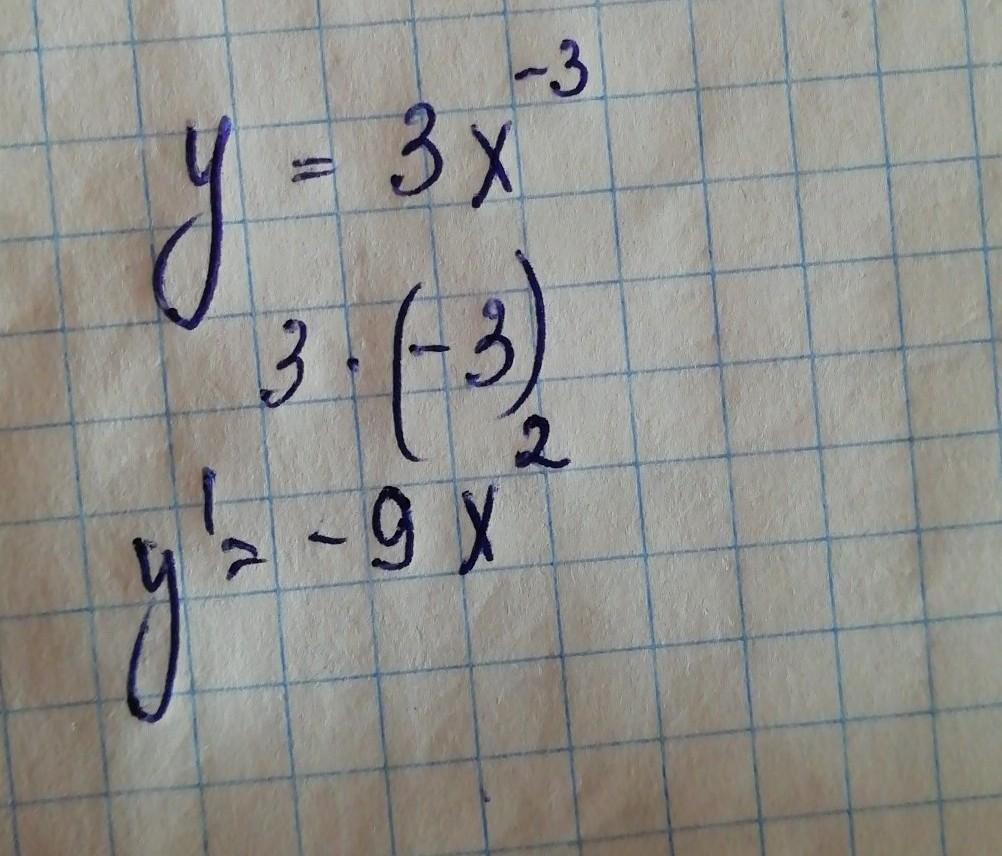 y = 3x⁻³
3 · (-3)
y' = -9x²